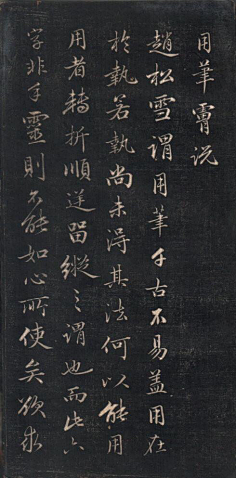 用筆實說
趙松雪謂用筆千古不易蓋用在
於執若執尚未得其法何以能用
用者轉折順逆留縱之謂也而此六
字非手靈則不能如心所使矣欲求